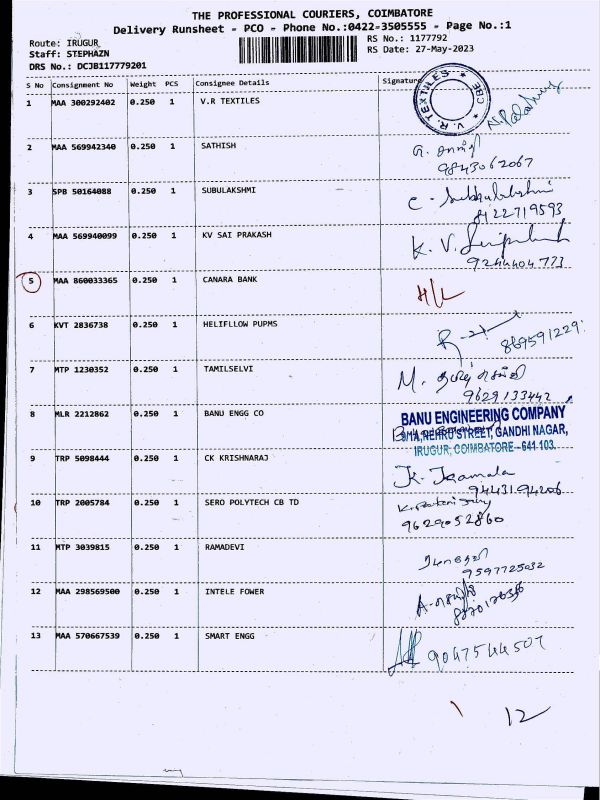 THE PROFESSIONAL COURIERS, COIMBATORE
Delivery Runsheet - PCO - Phone No.:0422-3505555 - Page No.:1
Route: IRUGUR
RS No.: 1177792
Staff: STEPHAZN
RS Date: 27-May-2023
DRS No.: DCJB117779201
S No Consignment No Weight PCS Consignee Details Signature
1 MAA 300292402 0.250 1 V.R TEXTILES
V. R. TEXTILES CBE
2 MAA 569942340 0.250 1 SATHISH
9843062067
3 SPB 50164088 0.250 1 SUBULAKSHMI
8122719593
4 MAA 569940099 0.250 1 KV SAI PRAKASH
K. V.
9244404773
5 MAA 860033365 0.250 1 CANARA BANK
H/L
6 KVT 2836738 0.250 1 HELIFLLOW PUPMS
869591229
7 MTP 1230352 0.250 1 TAMILSELVI
M. தமிழ் செல்வி
9629133442
8 MLR 2212862 0.250 1 BANU ENGG CO
BANU ENGINEERING COMPANY
9/11A, NEHRU STREET, GANDHI NAGAR,
IRUGUR, COIMBATORE - 641 103.
9 TRP 5098444 0.250 1 CK KRISHNARAJ
K. Kamala
9443194206
10 TRP 2005784 0.250 1 SERO POLYTECH CB TD
9629052860
11 MTP 3039815 0.250 1 RAMADEVI
ரமாதேவி
9597725032
12 MAA 298569500 0.250 1 INTELE FOWER
13 MAA 570667539 0.250 1 SMART ENGG
9047544507
12